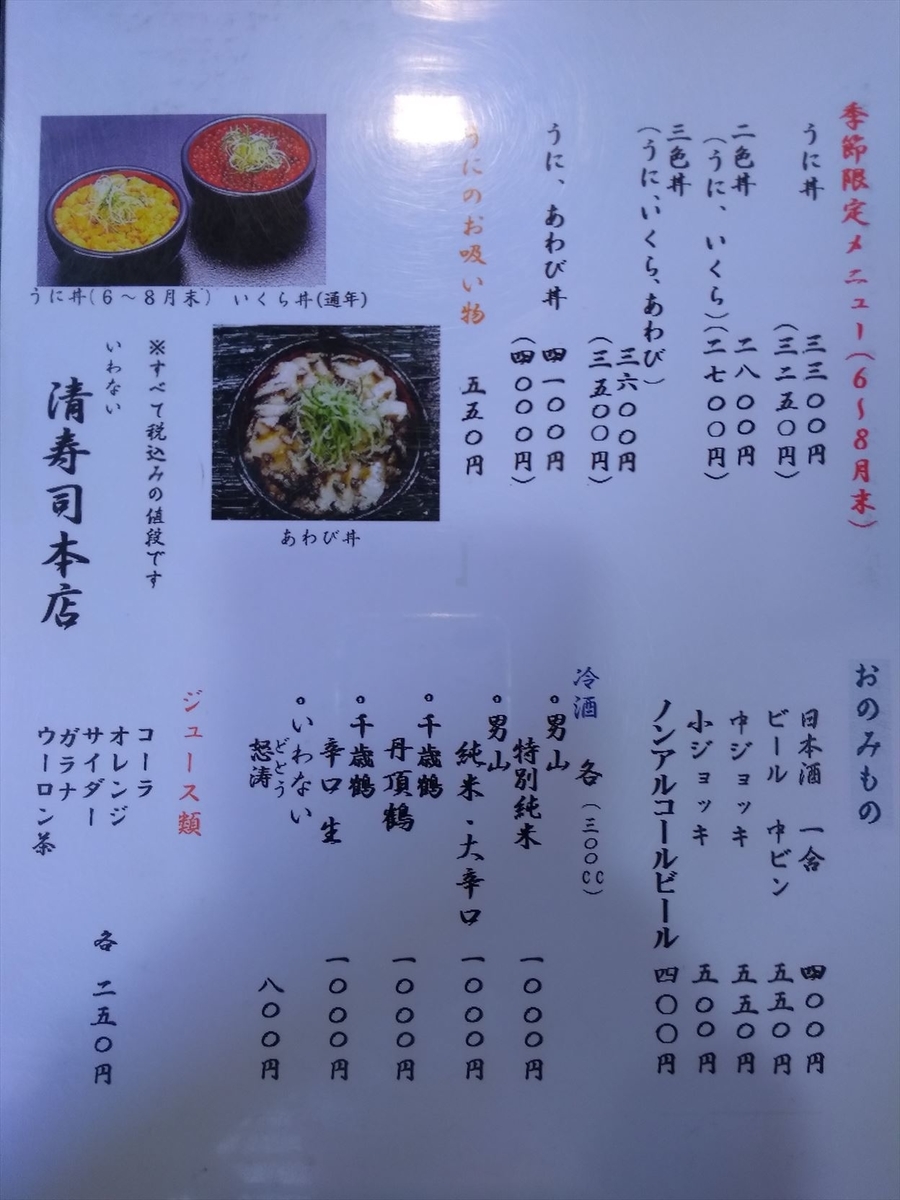 季節限定メニュー(6～8月末)
うに丼 三三〇〇円
(三二五〇円)
二色丼 二八〇〇円
(うに、いくら)(二七〇〇円)
三色丼
(うに、いくら、あわび) 三六〇〇円
(三五〇〇円)
うに、あわび丼 四一〇〇円
(四〇〇〇円)
うにのお吸い物 五五〇円
うに丼(6～8月末) いくら丼(通年)
あわび丼
※すべて税込みの値段です
いわない
清寿司本店
おのみもの
日本酒 一合 四〇〇円
ビール 中ビン 五五〇円
中ジョッキ 五五〇円
小ジョッキ 五〇〇円
ノンアルコールビール 四〇〇円
冷酒 各(三〇〇cc)
。男山
特別純米 一〇〇〇円
。男山
純米・大辛口 一〇〇〇円
。千歳鶴
丹頂鶴 一〇〇〇円
。千歳鶴
辛口 生 一〇〇〇円
。いわない
どとう
怒涛 八〇〇円
ジュース類
コーラ
オレンジ
サイダー
ガラナ
ウーロン茶
各 二五〇円